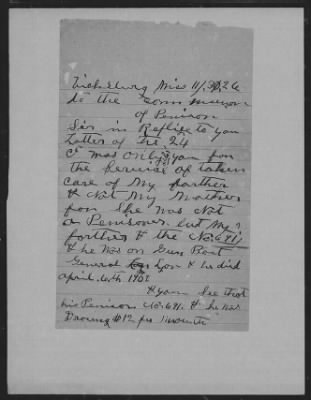 Vicksburg Miss 11/30, 26
to the Commissioner
of Pension
Sir in Replize to you
Letter of The 24
the Service of taken
care of My farther
& Not My Mother
for She was Not
a Pensioner but My
farther & the No. 691
& he was on Gun Boat
General Lyon & he died
april 1902
& you See that
his Pension No. 691. & he was
Drawing $12 per month